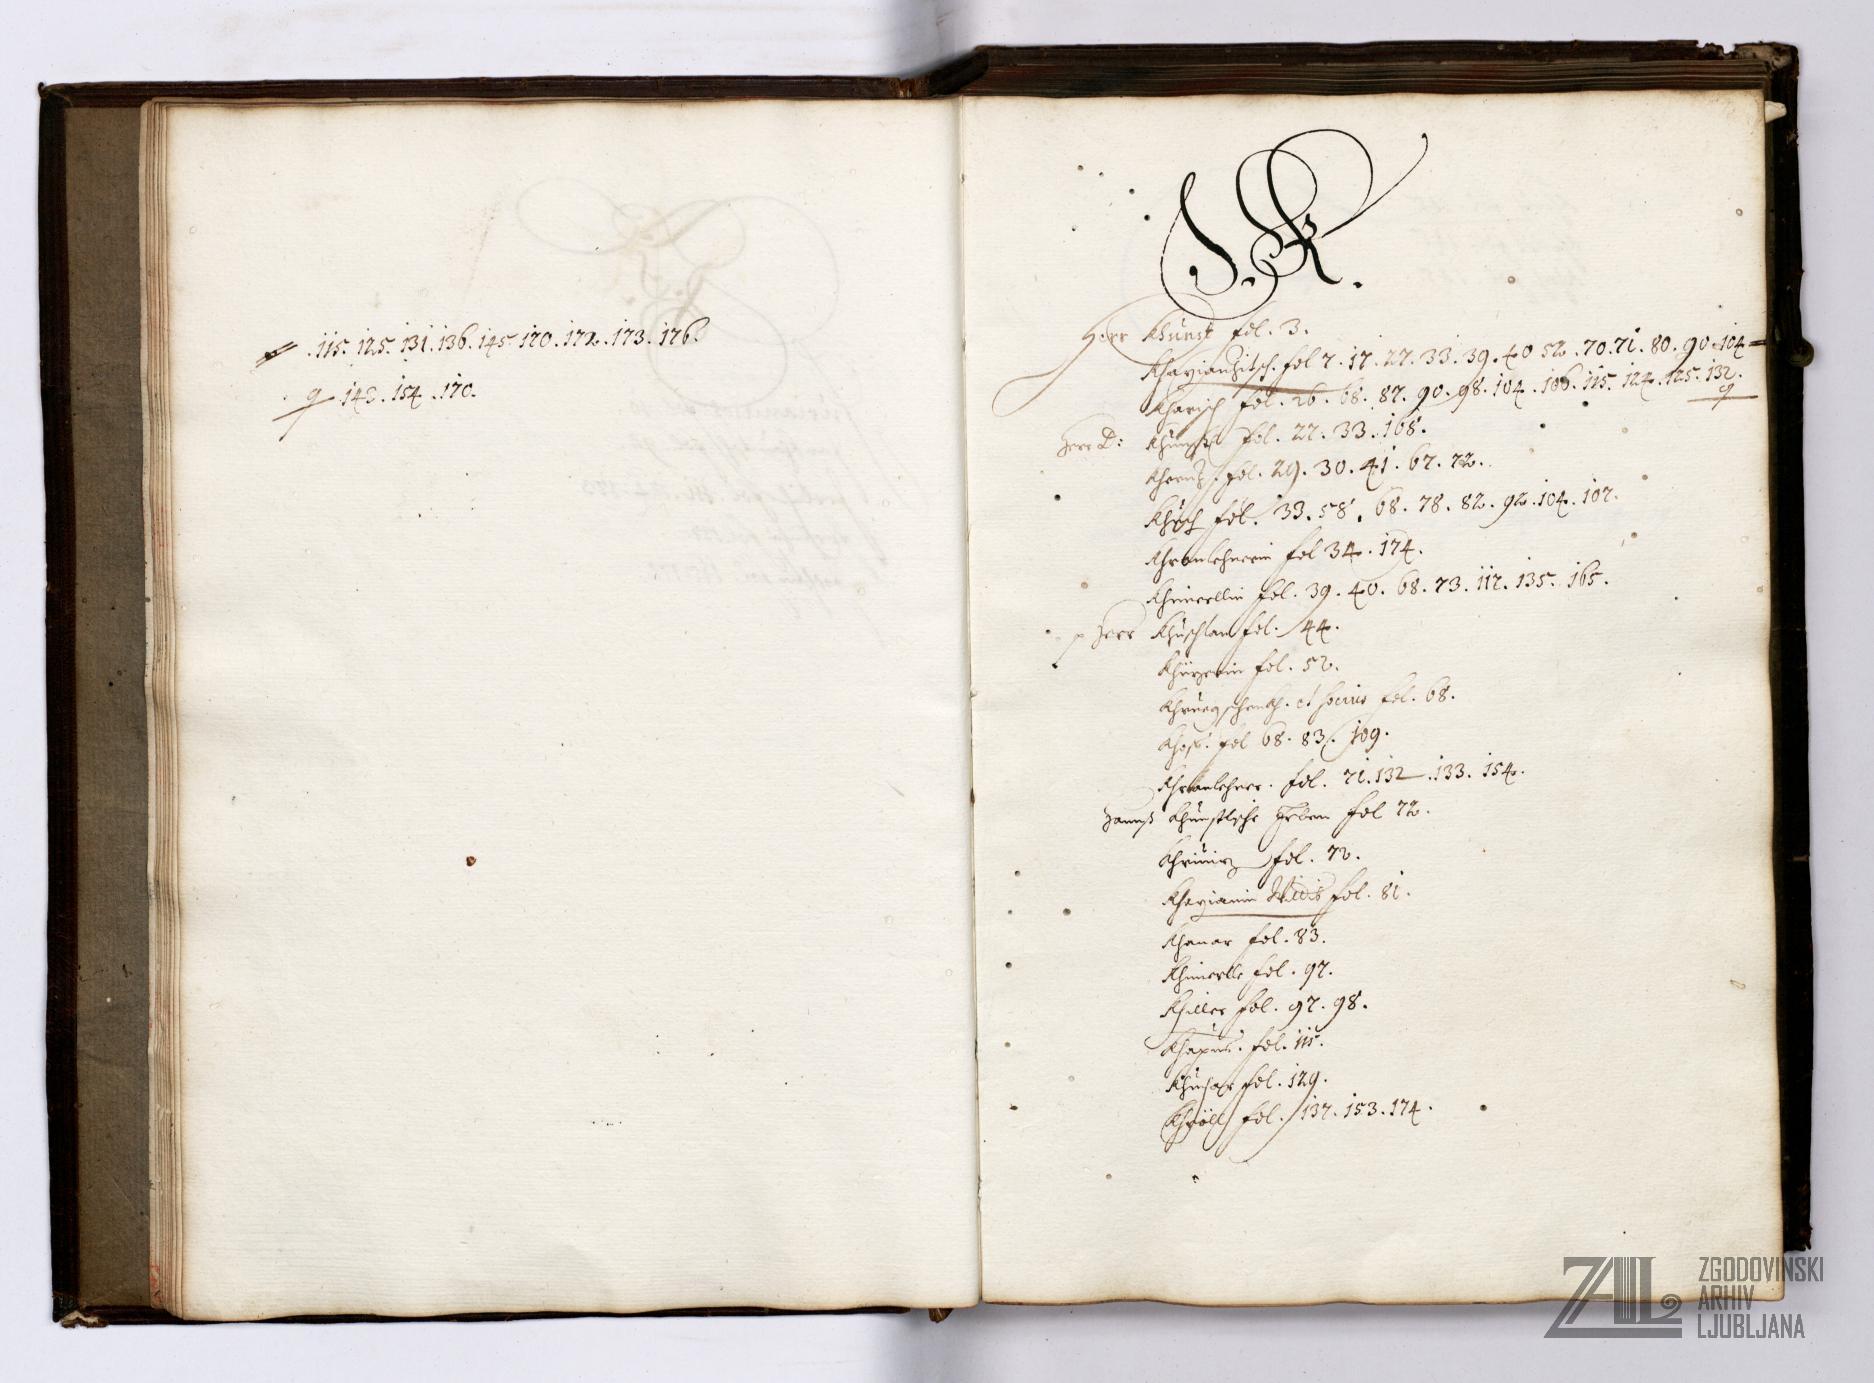 .115. 125. 131. 136. 145. 170. 172. 173. 176.
143. 154. 170.
I. K.
Herr Khunst fol. 3.
fol 7. 17. 27. 33. 39. 40 52. 70. 71. 80. 90. 104
Kharisch fol. 26. 68. 87. 90. 98. 104. 106. 115. 124. 125. 132.
Herr D: fol. 27. 33. 168.
fol. 29. 30. 41. 67. 72.
fol. 33. 58. 68. 78. 82. 92. 104. 107.
Khronlehnerin fol 34. 174.
Khimerllin fol. 39. 40. 68. 73. 117. 135. 165.
p Herr Khuschlan fol. 44.
fol. 52.
et socius fol. 68.
fol 68. 83. 109.
Khronlehner. fol. 71. 132. 133. 154.
Hannß Erben fol 72.
fol. 72.
fol. 81.
fol. 83.
Khimerlle fol. 97.
Khiller fol. 97. 98.
Khapus. fol. 115.
fol. 129.
Khröll fol. 137. 153. 174.
ZAL
ZGODOVINSKI
ARHIV
LJUBLJANA